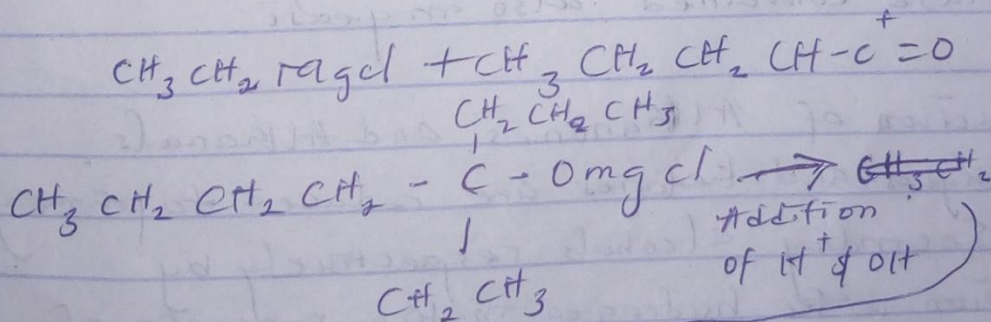 CH₃ CH₂ mgcl + CH₃ CH₂ CH₂ CH-C⁺=O
CH₂ CH₂ CH₃
CH₃ CH₂ CH₂ CH₂ - C - O mg cl → C̶H̶₃̶ ̶C̶H̶₂̶
Addition
of H⁺ & OH
CH₂ CH₃